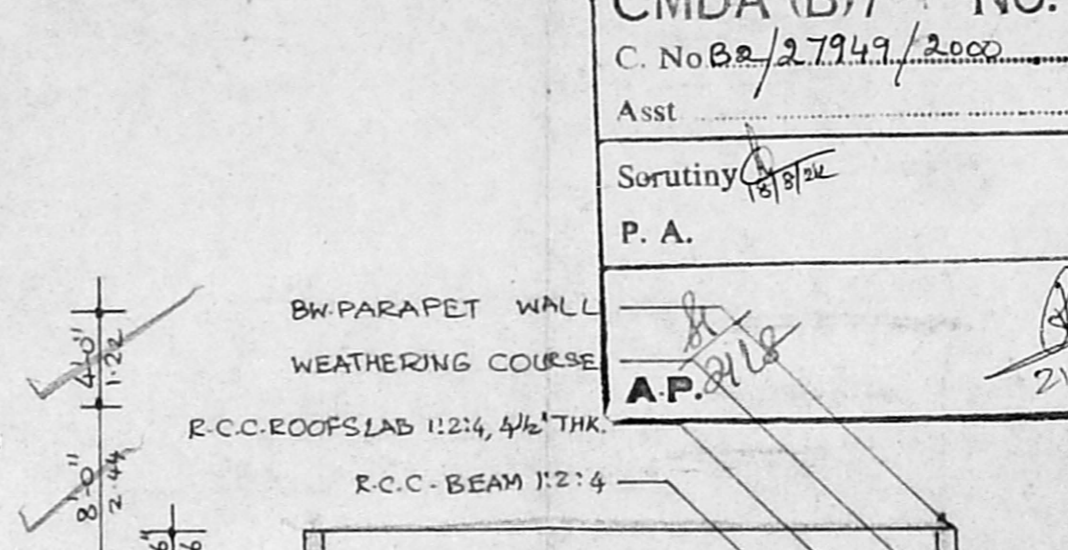 CMDA (B)/ No.
C. No B2/27949/2000
Asst
Scrutiny 18/8/2K
P. A.
BW. PARAPET WALL
WEATHERING COURSE
A.P.
R.C.C. ROOF SLAB 1:2:4, 4½" THK.
R.C.C - BEAM 1:2:4
4'-0"
1.22
8'-0"
2.44